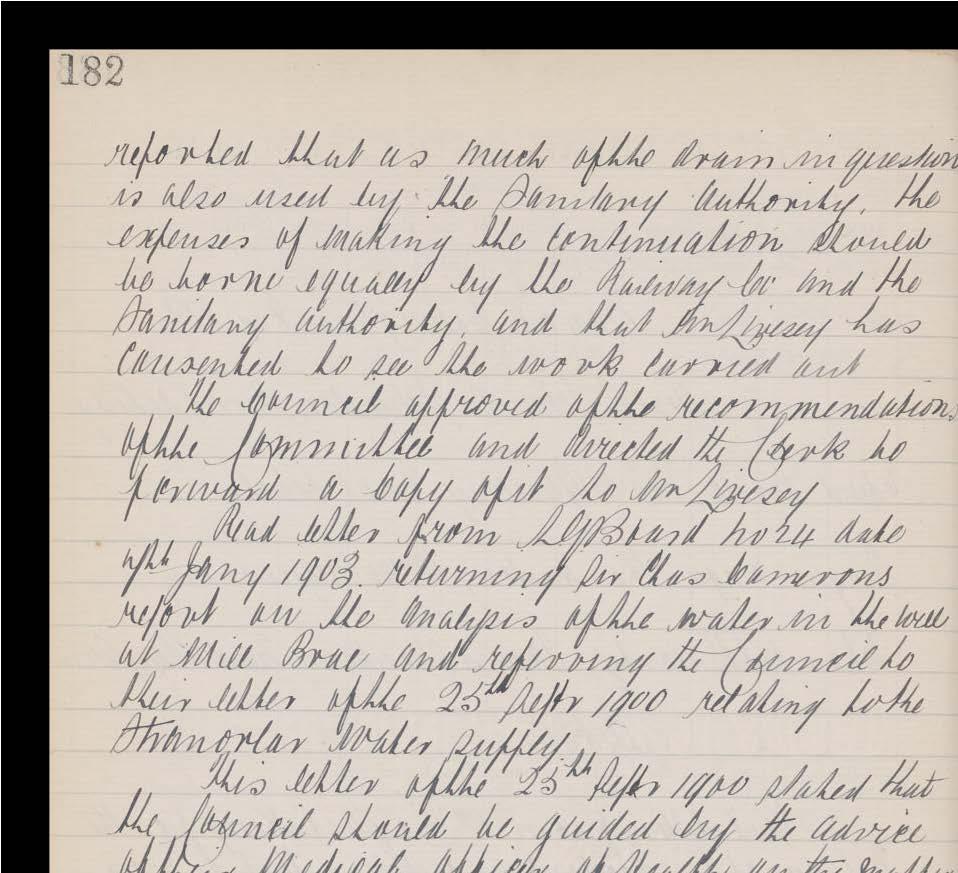 182
reported that as much of the drain in question
is also used by the Sanitary Authority, the
expenses of making the continuation should
be borne equally by the Railway Co and the
Sanitary Authority, and that Mr Livesey has
consented to see the work carried out
The Council approved of the recommendations
of the Committee and directed the Clerk to
forward a Copy of it to Mr Livesey
Read letter from LGBoard No 24 date
Jany 1903. returning Sir Chas Camerons
report on the Analysis of the water in the well
at Mill Brae and referring the Council to
their letter of the 25th Septr 1900 relating to the
Stranorlar Water supply.
This letter of the 25th Septr 1900 stated that
the Council should be guided by the advice
of their Medical Officer of Health on the matter